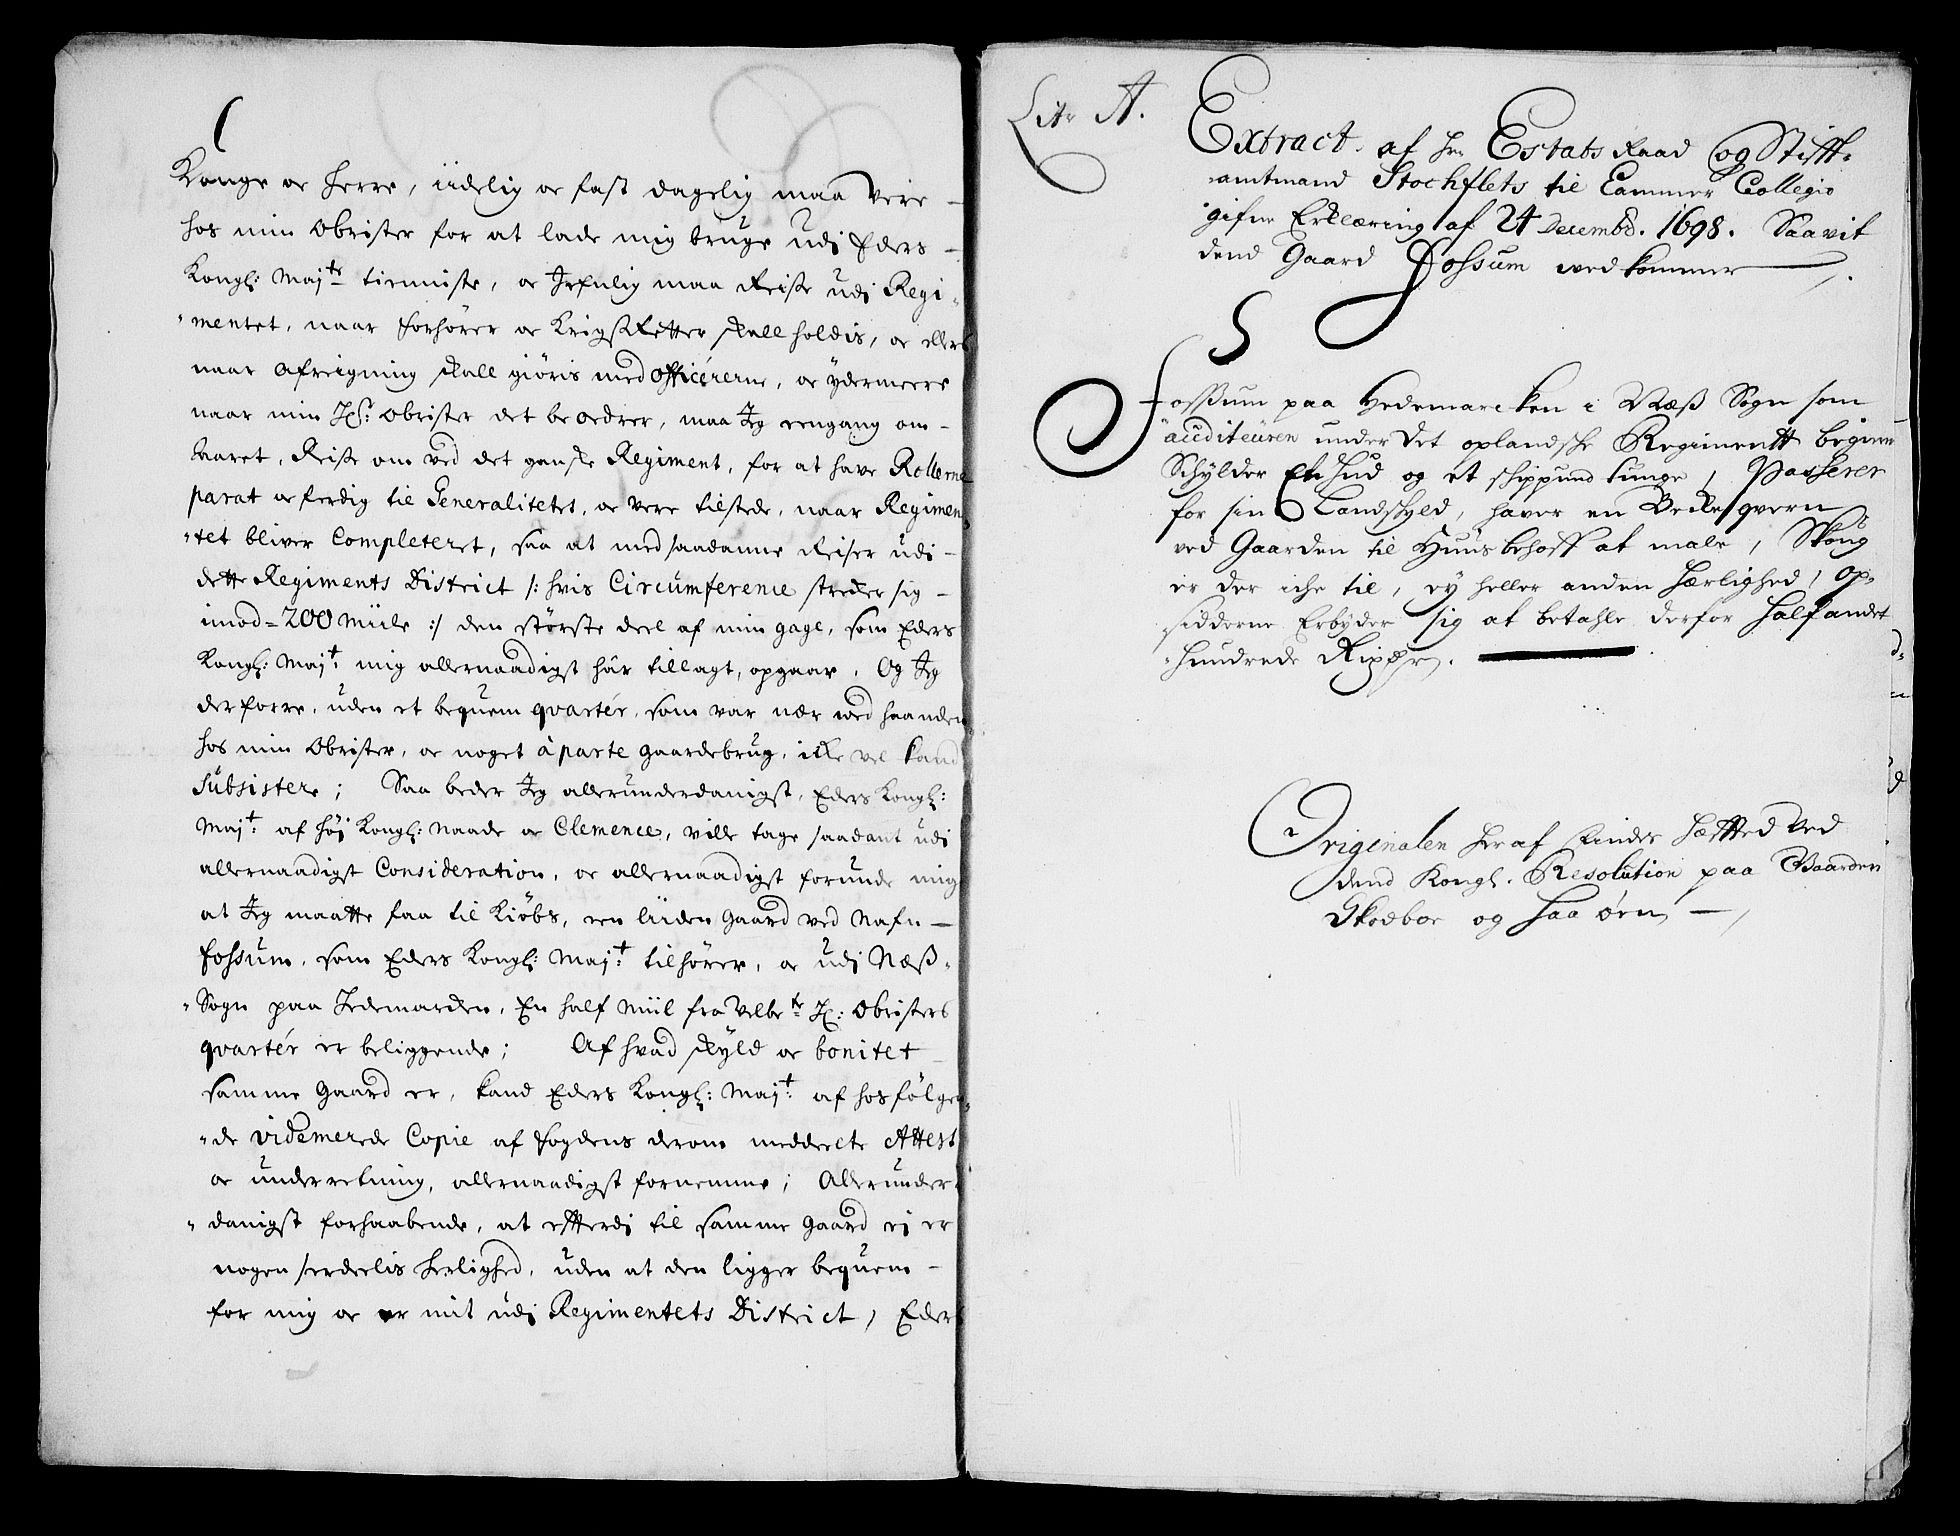 Konge oc Herre, iidelig oc fast dagelig maa være
hos min Obrister for at lade mig bruge udi Eders
Kongl: Maj:ts tienniste, oc Jefnlig maa Reise udi Regi-
mentet, naar forhører oc KrigsRetter skall holdis, oc ellers
naar Afreigning skall giøris med Officérerne, oc ydermeere
naar min Hr: Obrister det beordrer, maa Jeg eengang om-
Aaret, Reise om ved det gandske Regiment, for at have Rollerne
parat oc ferdig til Generalitetet, oc være tilstede, naar Regimen-
tet bliver Completeret, saa at med saadanne Reiser udi
dette Regiments District /: hvis Circumference strecker sig
imod 200 Miile :/ den største deel af min gage, som Eders
Kongl: Maj:t mig allernaadigst hâr tillagt, opgaar, Og Jeg
derforre, uden et beqvem qvartér, som var nær ved haanden
hos min Obrister, oc noget àparte gaardebrug, icke vel kand
subsistere; Saa beder Jeg allerunderdanigst, Eders Kongl:
Maj:t af høj Kongl: Naade oc Clemence, ville tage saadant udi
allernaadigst Consideration, oc allernaadigst forunde mig
at Jeg maatte faa til Kiøbs, een liiden Gaard ved Nafn
Fossum, som Eders Kongl: Maj:t tilhører, oc udi Næss-
Sogn paa Hedemarcken, En half Miil fra Velbe:te Hr: Obristers
qvartér er beliggende; Af hvad skyld oc bonitet
samme Gaard er, kand Eders Kongl: Maj:t af hosfølgen-
de videmerede Copie af fogdens derom meddeelte Attest
oc underretning, allernaadigst fornemme; Allerunder-
danigst forhaabende, at efterdi til samme Gaard ej er
nogen serdeelis herlighed, uden at den ligger beqvem
for mig oc er mit udi Regimentets District, Eders
Litr A.
Extract af Hr Estats Raad og Stift-
amtmand Stochflets til Cammer Collegio
gifne Erklæring af 24 Decembr. 1698. Saavit
dend Gaard Fossum vedkommer
Fossum paa Hedemarcken i Næss Sogn som
auditeuren under det oplandske Regimentt begierer
Schylder Een Hud og et schippund tunge, Passerer
for sin Landskyld, haver en Beckeqvern
ved Gaarden til Huusbehoff at male, Skoug
er der iche til, ey heller anden herlighed, Op-
sidderne Erbyder sig at betahle derfor half andet
hundrede Rixdr.
Originalen heraf findes hefftet ved
dend Kongl. Resolution paa Gaarden
Skodboe og Haa ørn